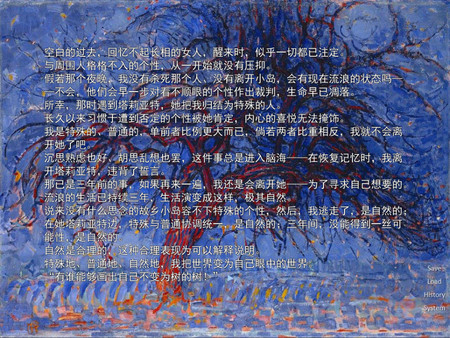 空白的过去、回忆不起长相的女人，醒来时，似乎一切都已注定。
与周围人格格不入的个性，从一开始就没有压抑。
假若那个夜晚，我没有杀死那个人、没有离开小岛，会有现在流浪的状态吗——
——不会，他们会早一步对看不顺眼的个性作出裁判，生命早已凋落。
所幸，那时遇到塔莉亚特，她把我归结为特殊的人。
长久以来习惯于遭到否定的个性被她肯定，内心的喜悦无法掩饰。
我是特殊的，普通的，单前者比例更大而已，倘若两者比重相反，我就不会离
开她了吧…
沉思熟虑也好，胡思乱想也罢，这件事总是进入脑海——在恢复记忆时，我离
开塔莉亚特，违背了誓言。
那已是三年前的事，如果再来一遍，我还是会离开她——为了寻求自己想要的
流浪的生活已持续三年，生活演变成这样，极其自然。
说来没有什么思念的故乡小岛容不下特殊的个性，然后，我逃走了，是自然的；
在她塔莉亚特边，特殊与普通协调统一，是自然的；三年间，没能得到一丝可
能性，是自然的。
自然是合理的，这种合理表现为可以解释说明。
特殊地、普通地、自然地，我把世界变为自己眼中的世界。
“有谁能够画出自己不变为树的树！”
Save
Load
History
System